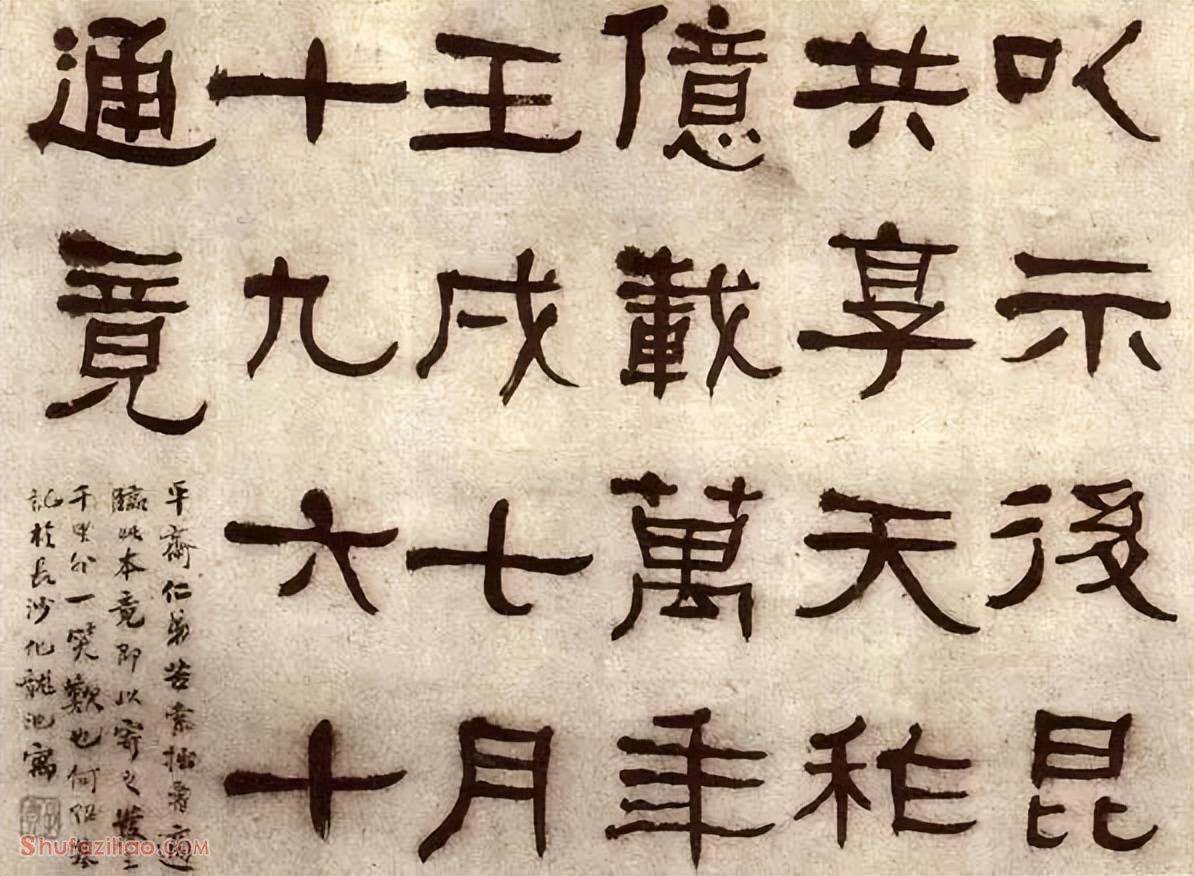 以示後昆
共享天祚
億載萬年
壬戌七月
十九六十
通竟
平齋仁弟苦索拙書適
臨此本竟即以寄之發三
千里外一笑歎也何紹基
記於長沙化龍池寓
Shufaziliao.com